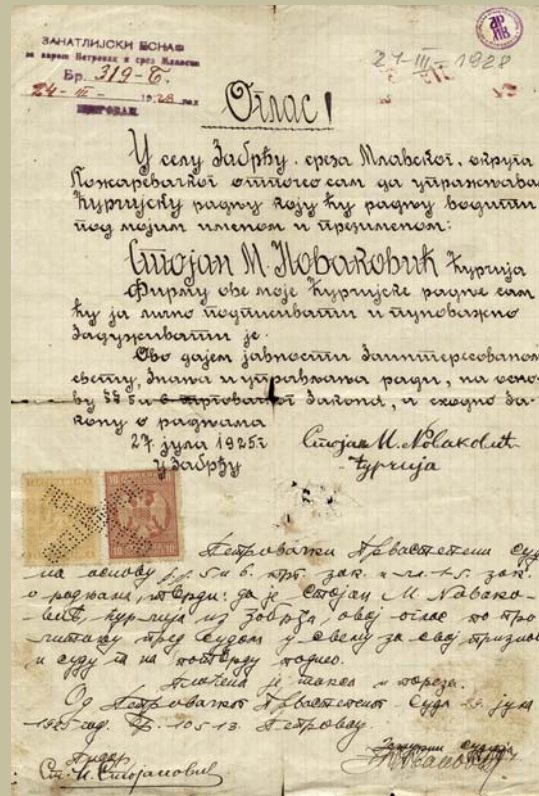 ЗАНАТЛИЈСКИ ЕСНАФ
за варош Петровац и срез Млавски
Бр. 319-Т.
24 - III - 1928 год
ПЕТРОВАЦ
24-III-1928
Оглас!
У селу Забрђу, среза Млавског, округа
Пожаревачког отпочео сам да упражњава
ћурчијску радњу коју ћу радњу водити
под мојим именом и презименом:
Стојан М. Новаковић ћурчија
Фирму ове моје ћурчијске радње сам
ћу ја лично потписивати и пуноважно
задуживати је.
Ово дајем јавности заинтересованом
свету, знања и управљања ради, на осно-
ву §§ 5 и 6 трговачког закона, а сходно за-
кону о радњама
27. јула 1925 г
у Забрђу
Стојан М. Новаковић
ћурчија
10 10
Петровачки Првостепени суд
на основу §.§. 5 и 6. трг. зак. и чл. 15. зак.
о радњама, тврди: да је Стојан М. Новако-
вић, ћурчија из Забрђа, овај оглас по про
читању пред судом у свему за свој признао
и суду га на потврду поднео.
Плаћена је такса и пореза.
Од Петровачког Првостепеног Суда јула
1925 год. Бр. 10513. Петровац
Писар
Ст. И. Стојановић
судија